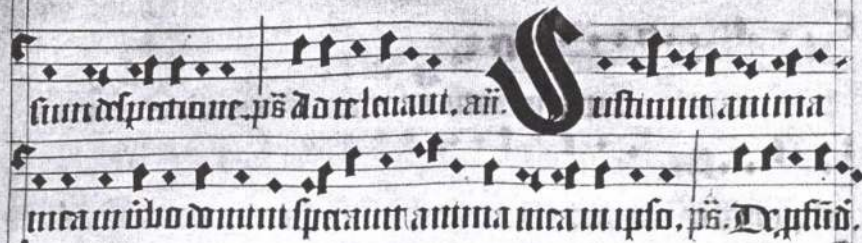 sumus despectione. ps̄ Ad te levavi. añ. Sustinuit anima
mea in v̾bo domini speravit anima mea in ipso. ps̄. De pfūd̾